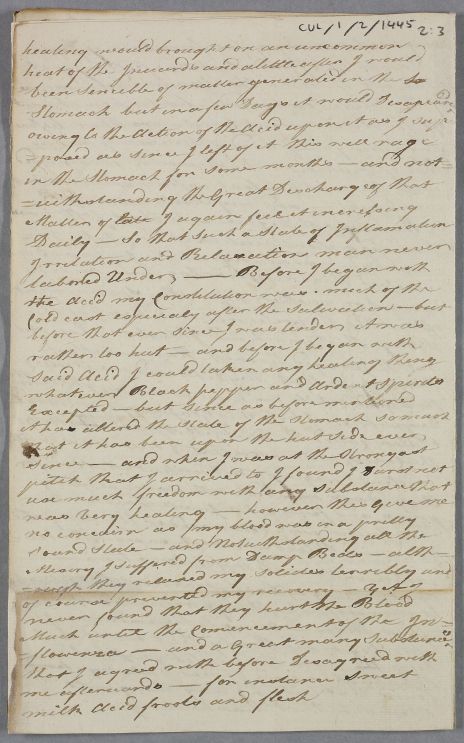 CUL/1/2/1445
2:3
healing would brought on an uncommon
heat of the Inwards and a little after I would
been sencible of matter generated in the
Stomach but in a few Days it would Desapear
owing to the Action of the Acid upon it as I sup
=posed as since I left of it this will rage
in the Stomach for some months — and not=
=withstanding the Great Descharge of that
Matter of late I again feel it incresing
Daily — So that such a State of Inflamation
Irritation and Relaxation man never
labored Under — Before I began with
the Acid my Constitution was much of the
Cold cast especialy after the Salivation — but
before that ever since I was tender it was
rather too hut — and before I began with
said Acid I could taken any healing thing
whatever Black pepper and Ardent Spirits
Excepted — but since as before mentioned
it has altered the State of the Stomach so much
that it has been upon the hut side ever
since — and when I was at the Strongest
pitch that I arrived to I found I durst not
use much freedom with any Substance that
was very healing — however this Give me
no concirn as my blood was in a pretty
Sound State — and Notwithstanding all the
Misery I suffered from Damp Beds — alth-
-ough they relaxed my Solides terribly and
of course prevented my recovery — Yet I
never found that they heart the Blood
Much until the Comencement of the In-
flowenza — and a Great many Substance
that I agreed with before Desagreed with
me afterwards — for instance Sweat
milk Acid froots and flesh